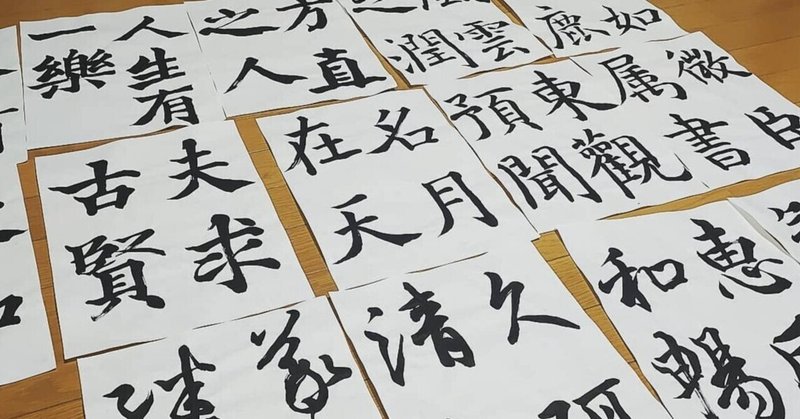 人生有
一樂
方直
之人
雲
潤
如
微臣
属書
東觀
預聞
名月
在天
夫求
古賢
恵
和暢
久
清